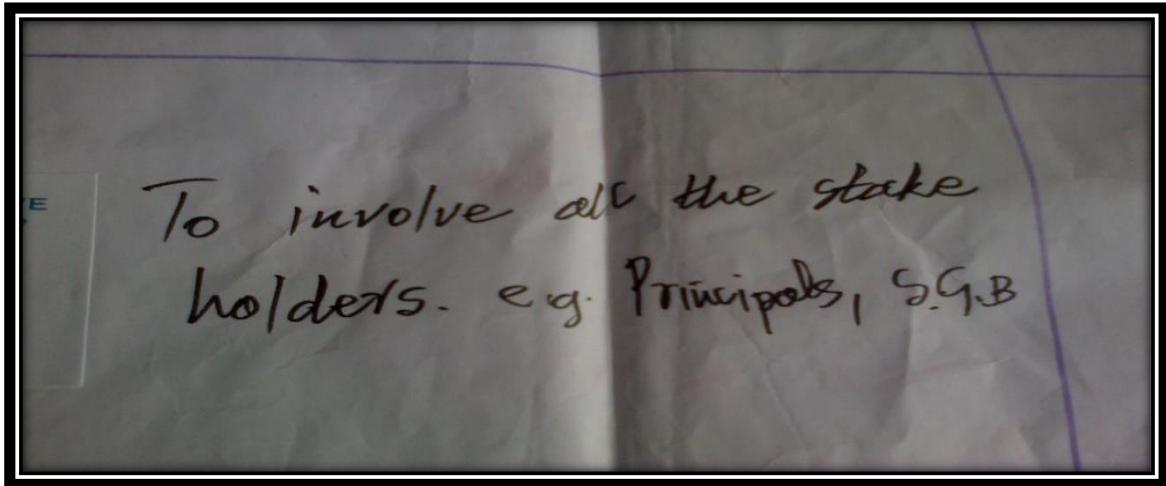 To involve all the stake
holders. e.g. Principals, S.G.B